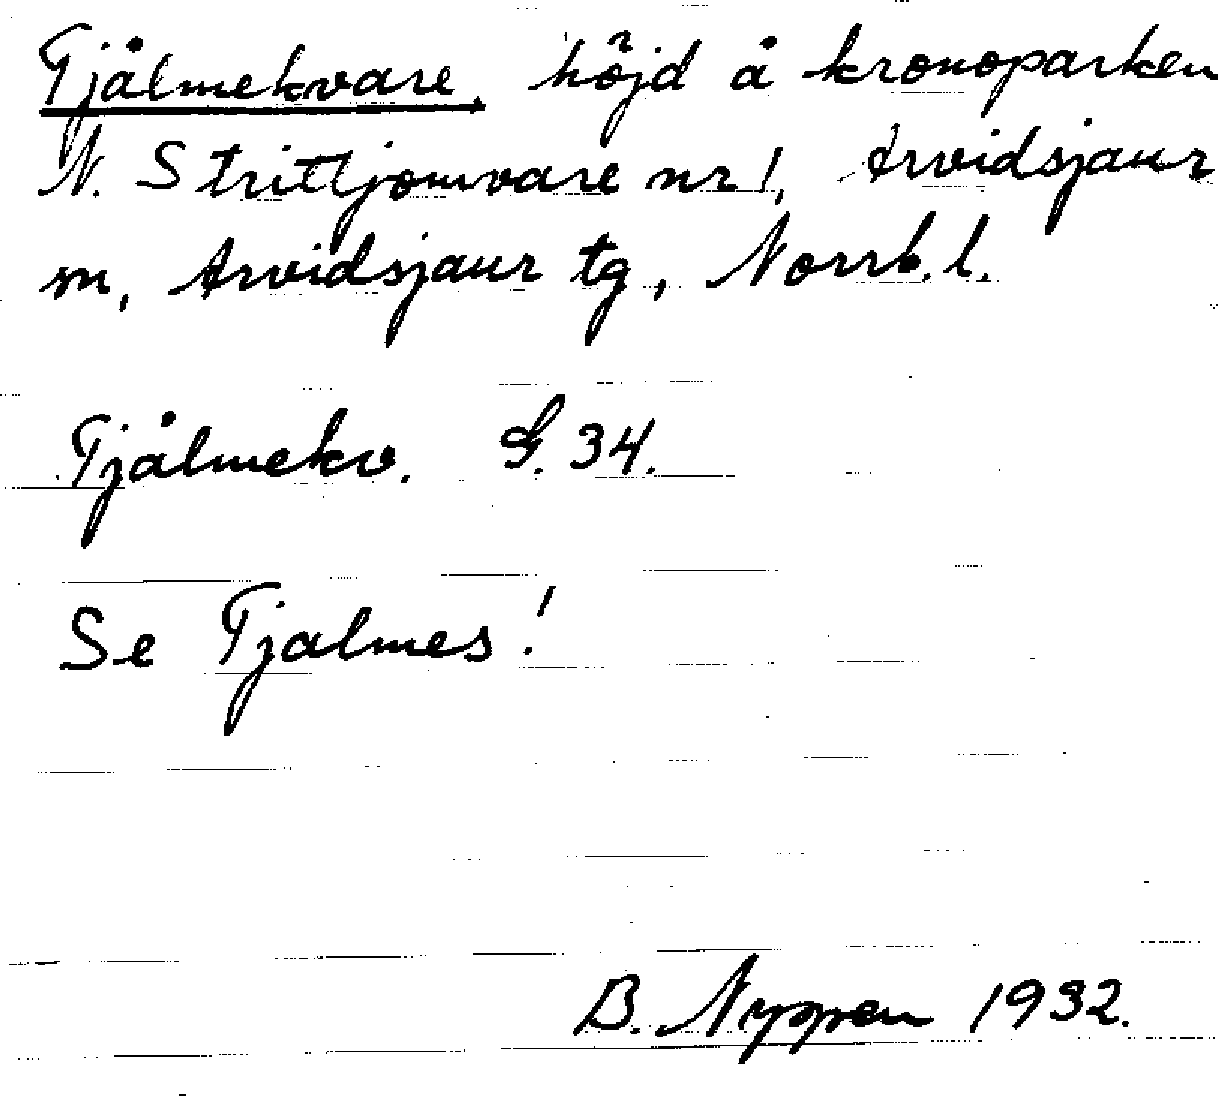 Tjålmekvare, höjd å kronoparken
N. Strittjomvare nr 1, Arvidsjaur
sn, Arvidsjaur tg, Norrb. l.
Tjålmekv. G. 34.
Se Tjalmes!
B. Nyppen 1932.